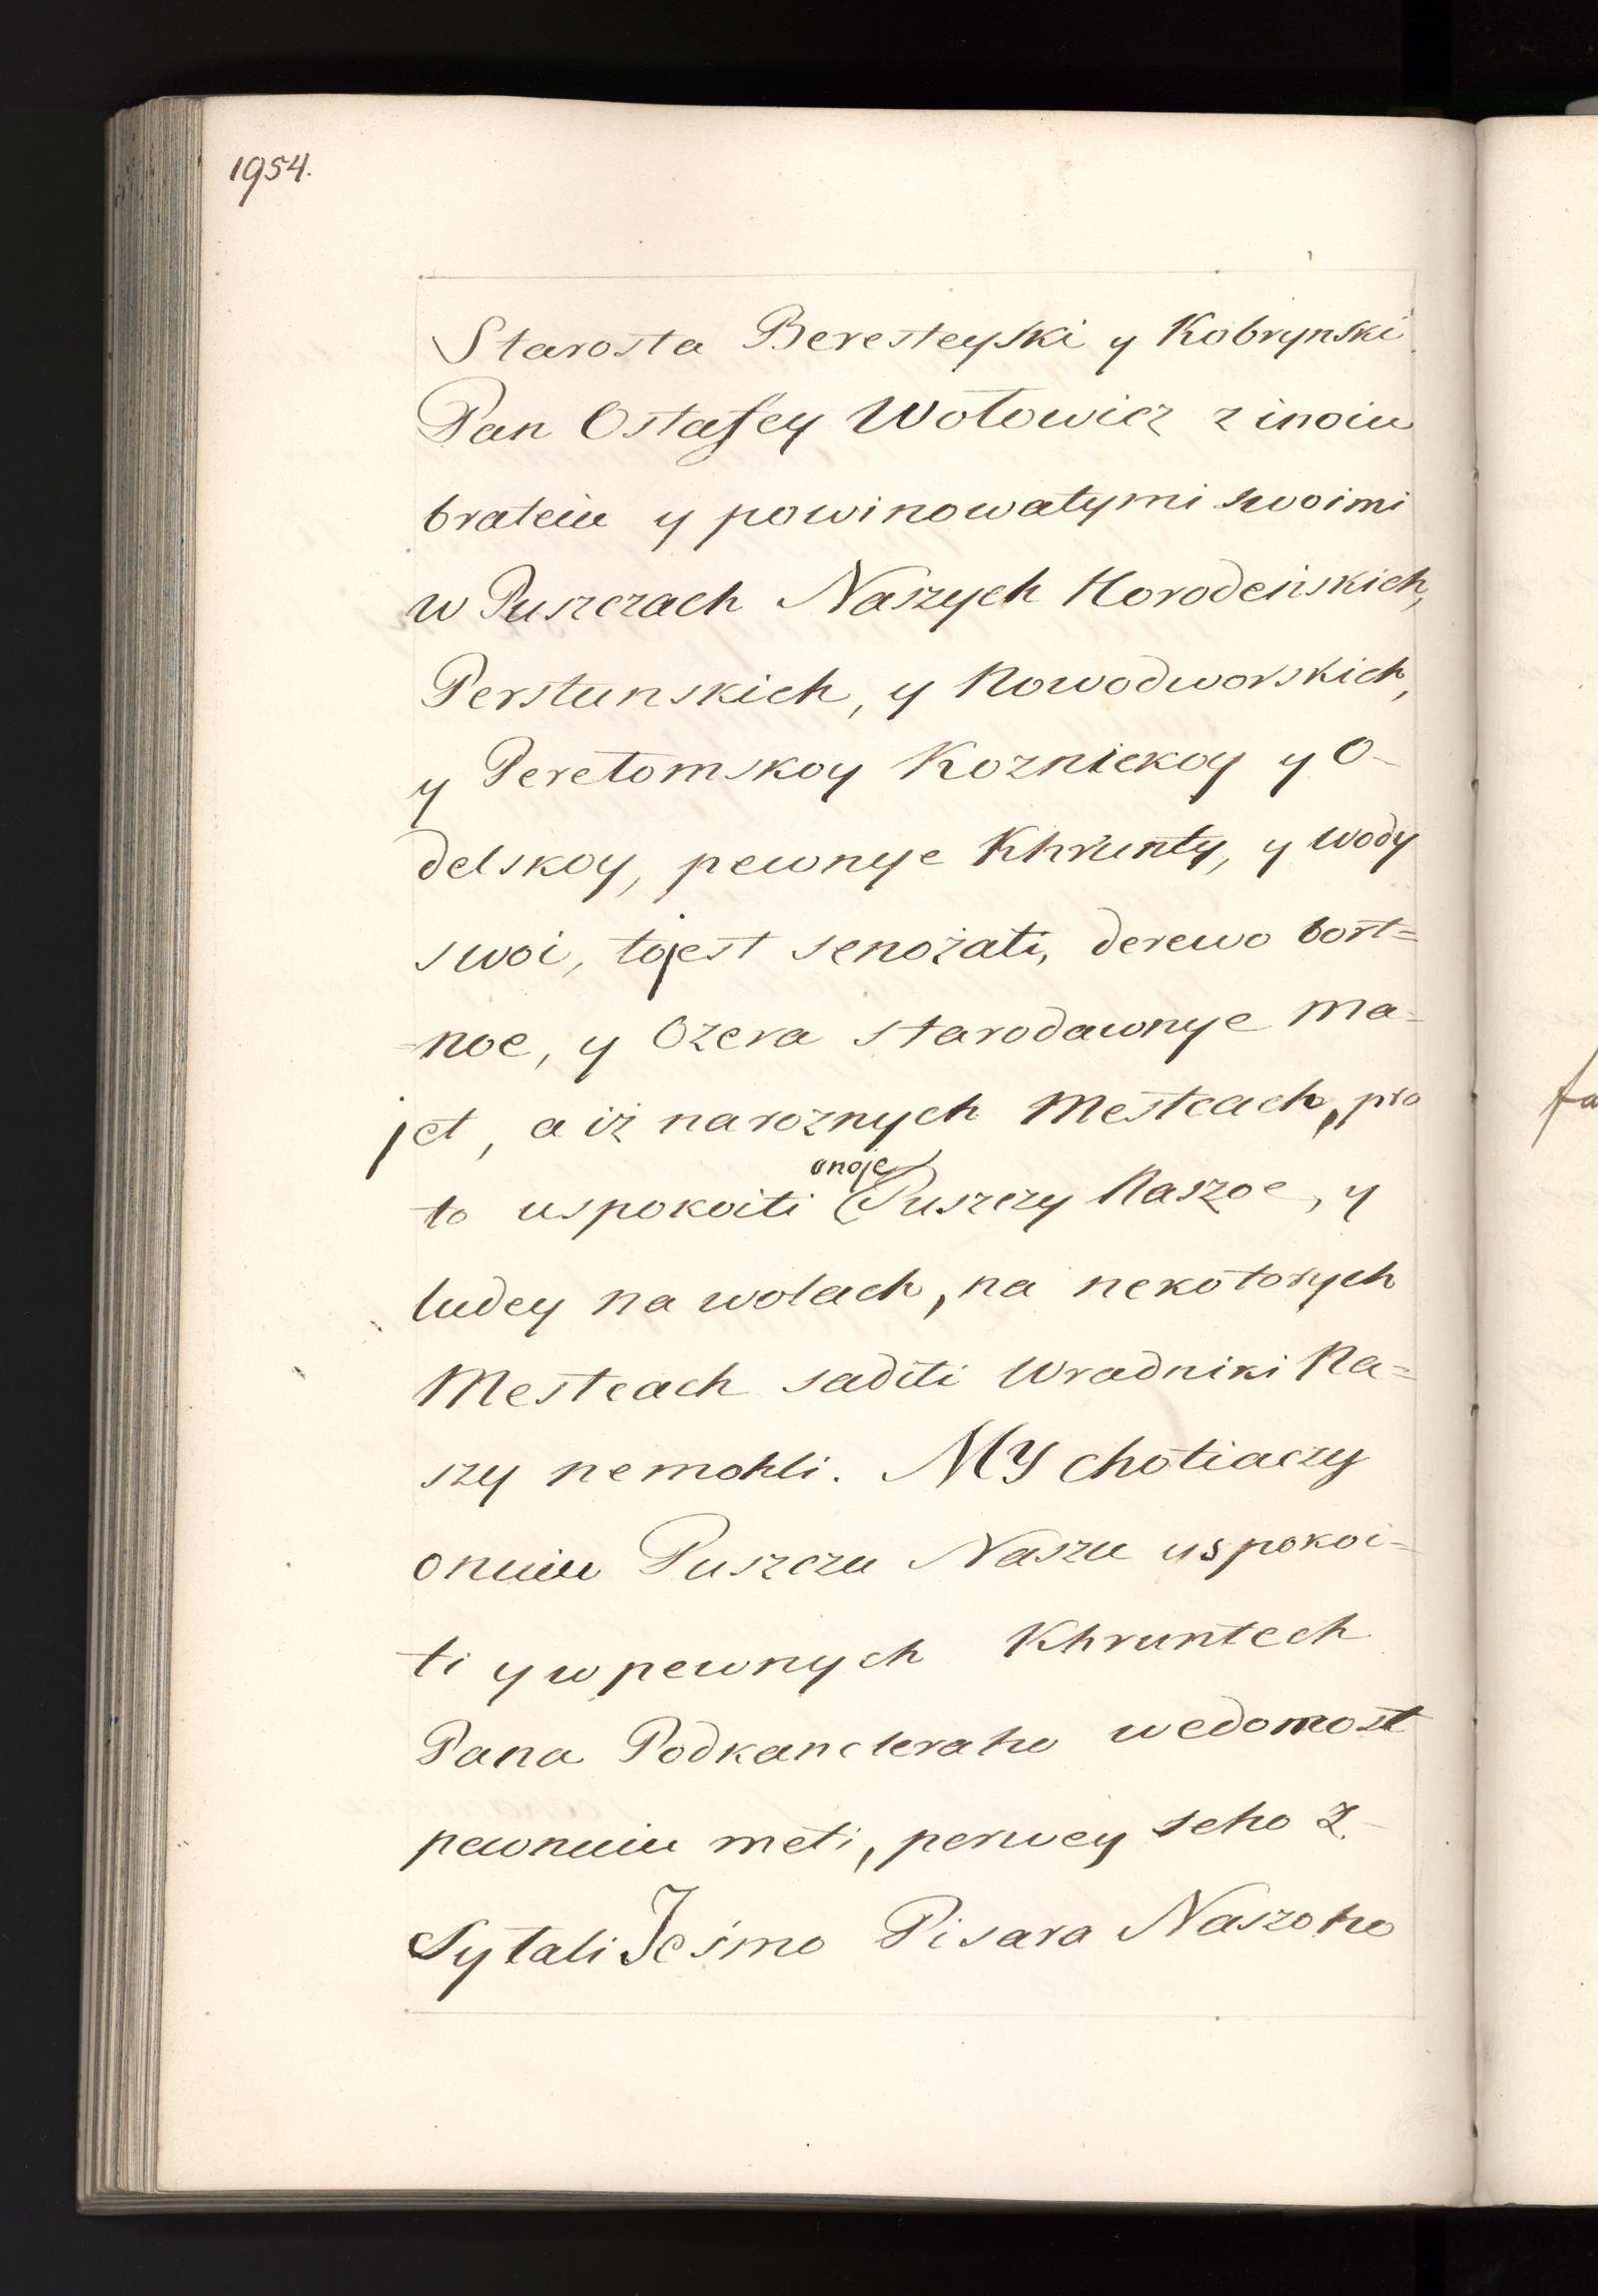 1954.
Starosta Beresteyski y Kobrynski
Pan Ostafey Wołowicz z inoiu
brateiu y powinowatymi swoimi
w Puszczach Naszych Horodeńskich,
Perstunskich, y Nowodworskich,
y Perełomskoy Koznickoy y O-
delskoy, pewnye Khrunty, y wody
swoi, tojest senożati, derewo bort=
=noe, y Ozera starodawnye ma=
jet, a iż naroznych Mestcach, pro
to uspokoiti onoje Puszczy Naszoe, y
ludey na wolach, na nekotorych
Mestcach saditi Wradniki Na=
szy nemohli. MY chotiaczy
onuiu Puszczu Naszu uspokoi=
ti y w pewnych Khruntech
Pana Podkancleraho wedomost
pewnuiu meti, perwey seho Z-
Sytali Jeśmo Pisara Naszoho